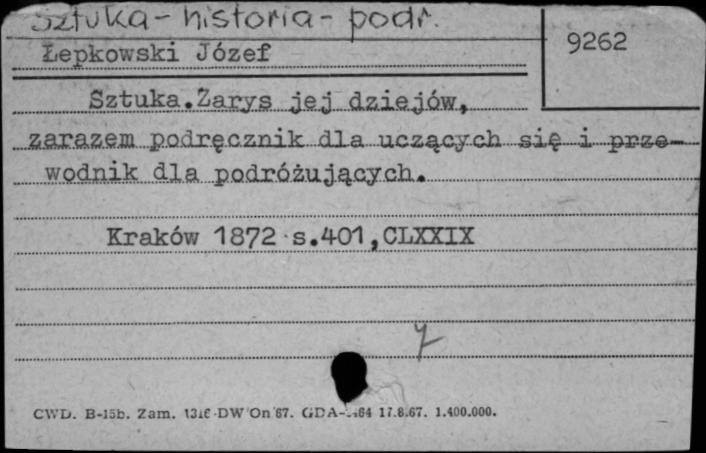 Sztuka - historia - podr.
9262
Łepkowski Józef
Sztuka.Zarys jej dziejów,
zarazem podręcznik dla uczących się i prze-
wodnik dla podróżujących.
Kraków 1872 s.401,CLXXIX
CWD. B-15b. Zam. DW On 67. 17.8.67. 1.400.000.